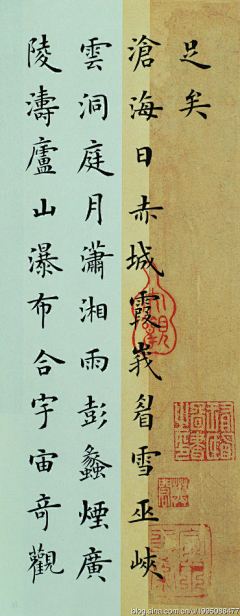 足矣
滄海日赤城霞峩眉雪巫峽
雲洞庭月瀟湘雨彭蠡煙廣
陵濤廬山瀑布合宇宙奇觀